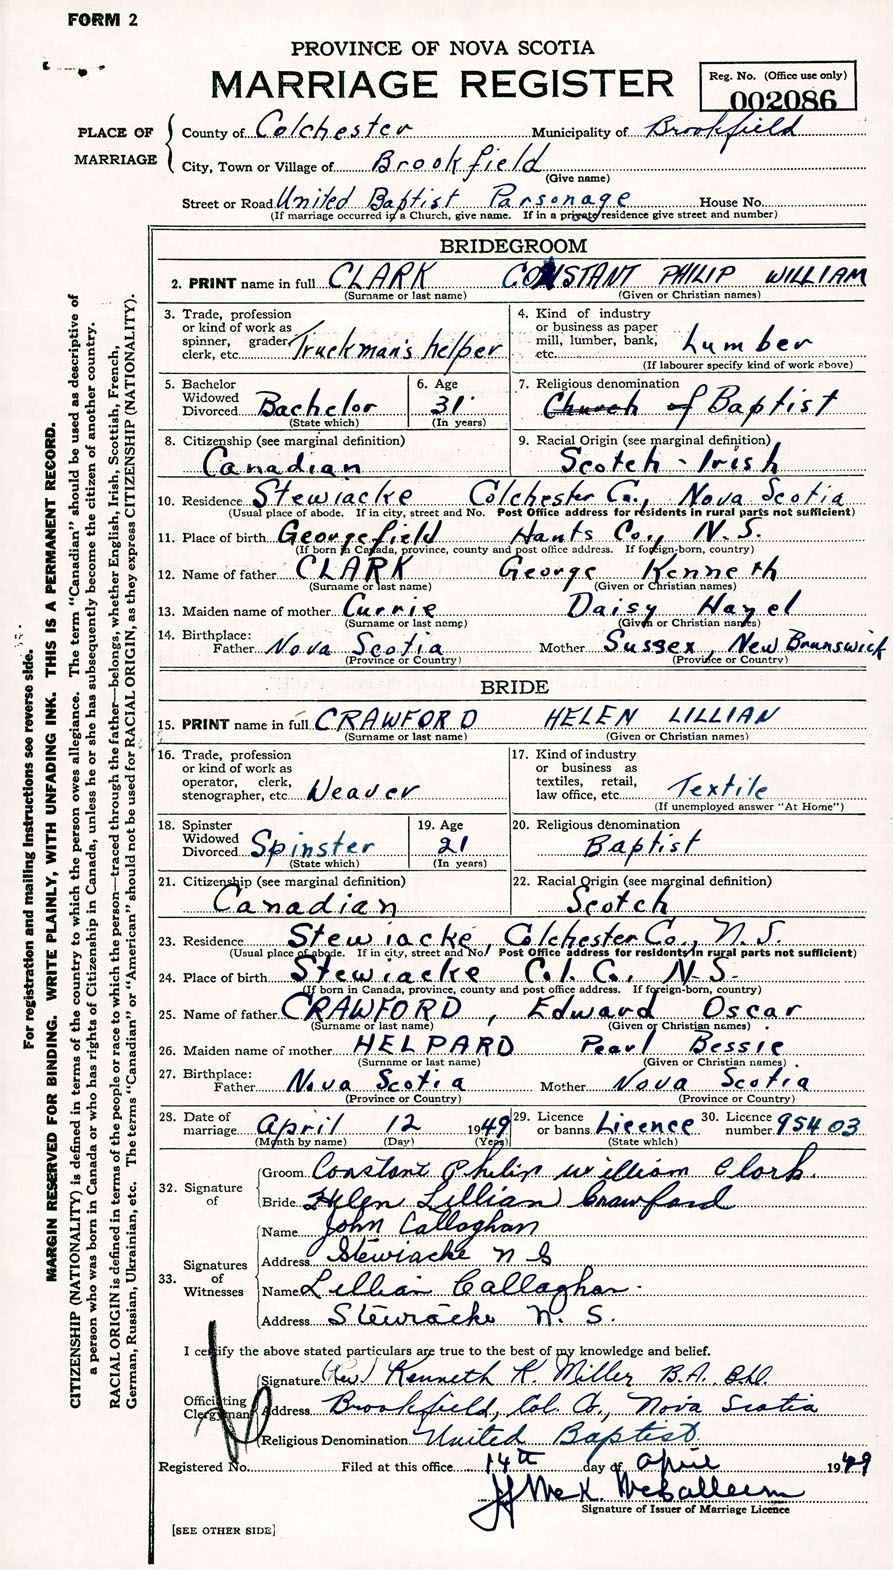 FORM 2
PROVINCE OF NOVA SCOTIA
MARRIAGE REGISTER
Reg. No. (Office use only)
002086
PLACE OF MARRIAGE
County of Colchester Municipality of Brookfield
City, Town or Village of Brookfield
(Give name)
Street or Road United Baptist Parsonage House No.
(If marriage occurred in a Church, give name. If in a private residence give street and number)
BRIDEGROOM
2. PRINT name in full CLARK CONSTANT PHILIP WILLIAM
(Surname or last name) (Given or Christian names)
3. Trade, profession or kind of work as spinner, grader, clerk, etc. Truckman's helper
4. Kind of industry or business as paper mill, lumber, bank, etc. Lumber
(If labourer specify kind of work above)
5. Bachelor Widowed Divorced Bachelor
(State which)
6. Age 31
(In years)
7. Religious denomination Church of Baptist
8. Citizenship (see marginal definition) Canadian
9. Racial Origin (see marginal definition) Scotch - Irish
10. Residence Stewiacke Colchester Co., Nova Scotia
(Usual place of abode. If in city, street and No. Post Office address for residents in rural parts not sufficient)
11. Place of birth Georgefield Hants Co., N.S.
(If born in Canada, province, county and post office address. If foreign-born, country)
12. Name of father CLARK George Kenneth
(Surname or last name) (Given or Christian names)
13. Maiden name of mother Currie Daisy Hazel
(Surname or last name) (Given or Christian names)
14. Birthplace: Father Nova Scotia Mother Sussex, New Brunswick
(Province or Country) (Province or Country)
BRIDE
15. PRINT name in full CRAWFORD HELEN LILLIAN
(Surname or last name) (Given or Christian names)
16. Trade, profession or kind of work as operator, clerk, stenographer, etc. Weaver
17. Kind of industry or business as textiles, retail, law office, etc. Textile
(If unemployed answer "At Home")
18. Spinster Widowed Divorced Spinster
(State which)
19. Age 21
(In years)
20. Religious denomination Baptist
21. Citizenship (see marginal definition) Canadian
22. Racial Origin (see marginal definition) Scotch
23. Residence Stewiacke, Colchester Co., N.S.
(Usual place of abode. If in city, street and No. Post Office address for residents in rural parts not sufficient)
24. Place of birth Stewiacke Col. C. N.S.
(If born in Canada, province, county and post office address. If foreign-born, country)
25. Name of father CRAWFORD, Edward Oscar
(Surname or last name) (Given or Christian names)
26. Maiden name of mother HELPARD Pearl Bessie
(Surname or last name) (Given or Christian names)
27. Birthplace: Father Nova Scotia Mother Nova Scotia
(Province or Country) (Province or Country)
28. Date of marriage April 12 1949
(Month by name) (Day) (Year)
29. Licence or banns Licence
(State which)
30. Licence number 95403
32. Signature of
Groom Constant Philip William Clark
Bride Helen Lillian Crawford
33. Signatures of Witnesses
Name John Callaghan
Address Stewiacke N S
Name Lillian Callaghan
Address Stewiacke N. S.
I certify the above stated particulars are true to the best of my knowledge and belief.
Officiating Clergyman
Signature (Rev.) Kenneth K. Miller B.A.
Address Brookfield, Col. Co., Nova Scotia
Religious Denomination United Baptist
Registered No. Filed at this office 14th day of April 1949
Signature of Issuer of Marriage Licence
[SEE OTHER SIDE]
For registration and mailing instructions see reverse side.
MARGIN RESERVED FOR BINDING. WRITE PLAINLY, WITH UNFADING INK. THIS IS A PERMANENT RECORD.
CITIZENSHIP (NATIONALITY) is defined in terms of the country to which the person owes allegiance. The term "Canadian" should be used as descriptive of
a person who was born in Canada or who has rights of Citizenship in Canada, unless he or she has subsequently become the citizen of another country.
RACIAL ORIGIN is defined in terms of the people or race to which the person—traced through the father—belongs, whether English, Irish, Scottish, French,
German, Russian, Ukrainian, etc. The terms "Canadian" or "American" should not be used for RACIAL ORIGIN, as they express CITIZENSHIP (NATIONALITY).